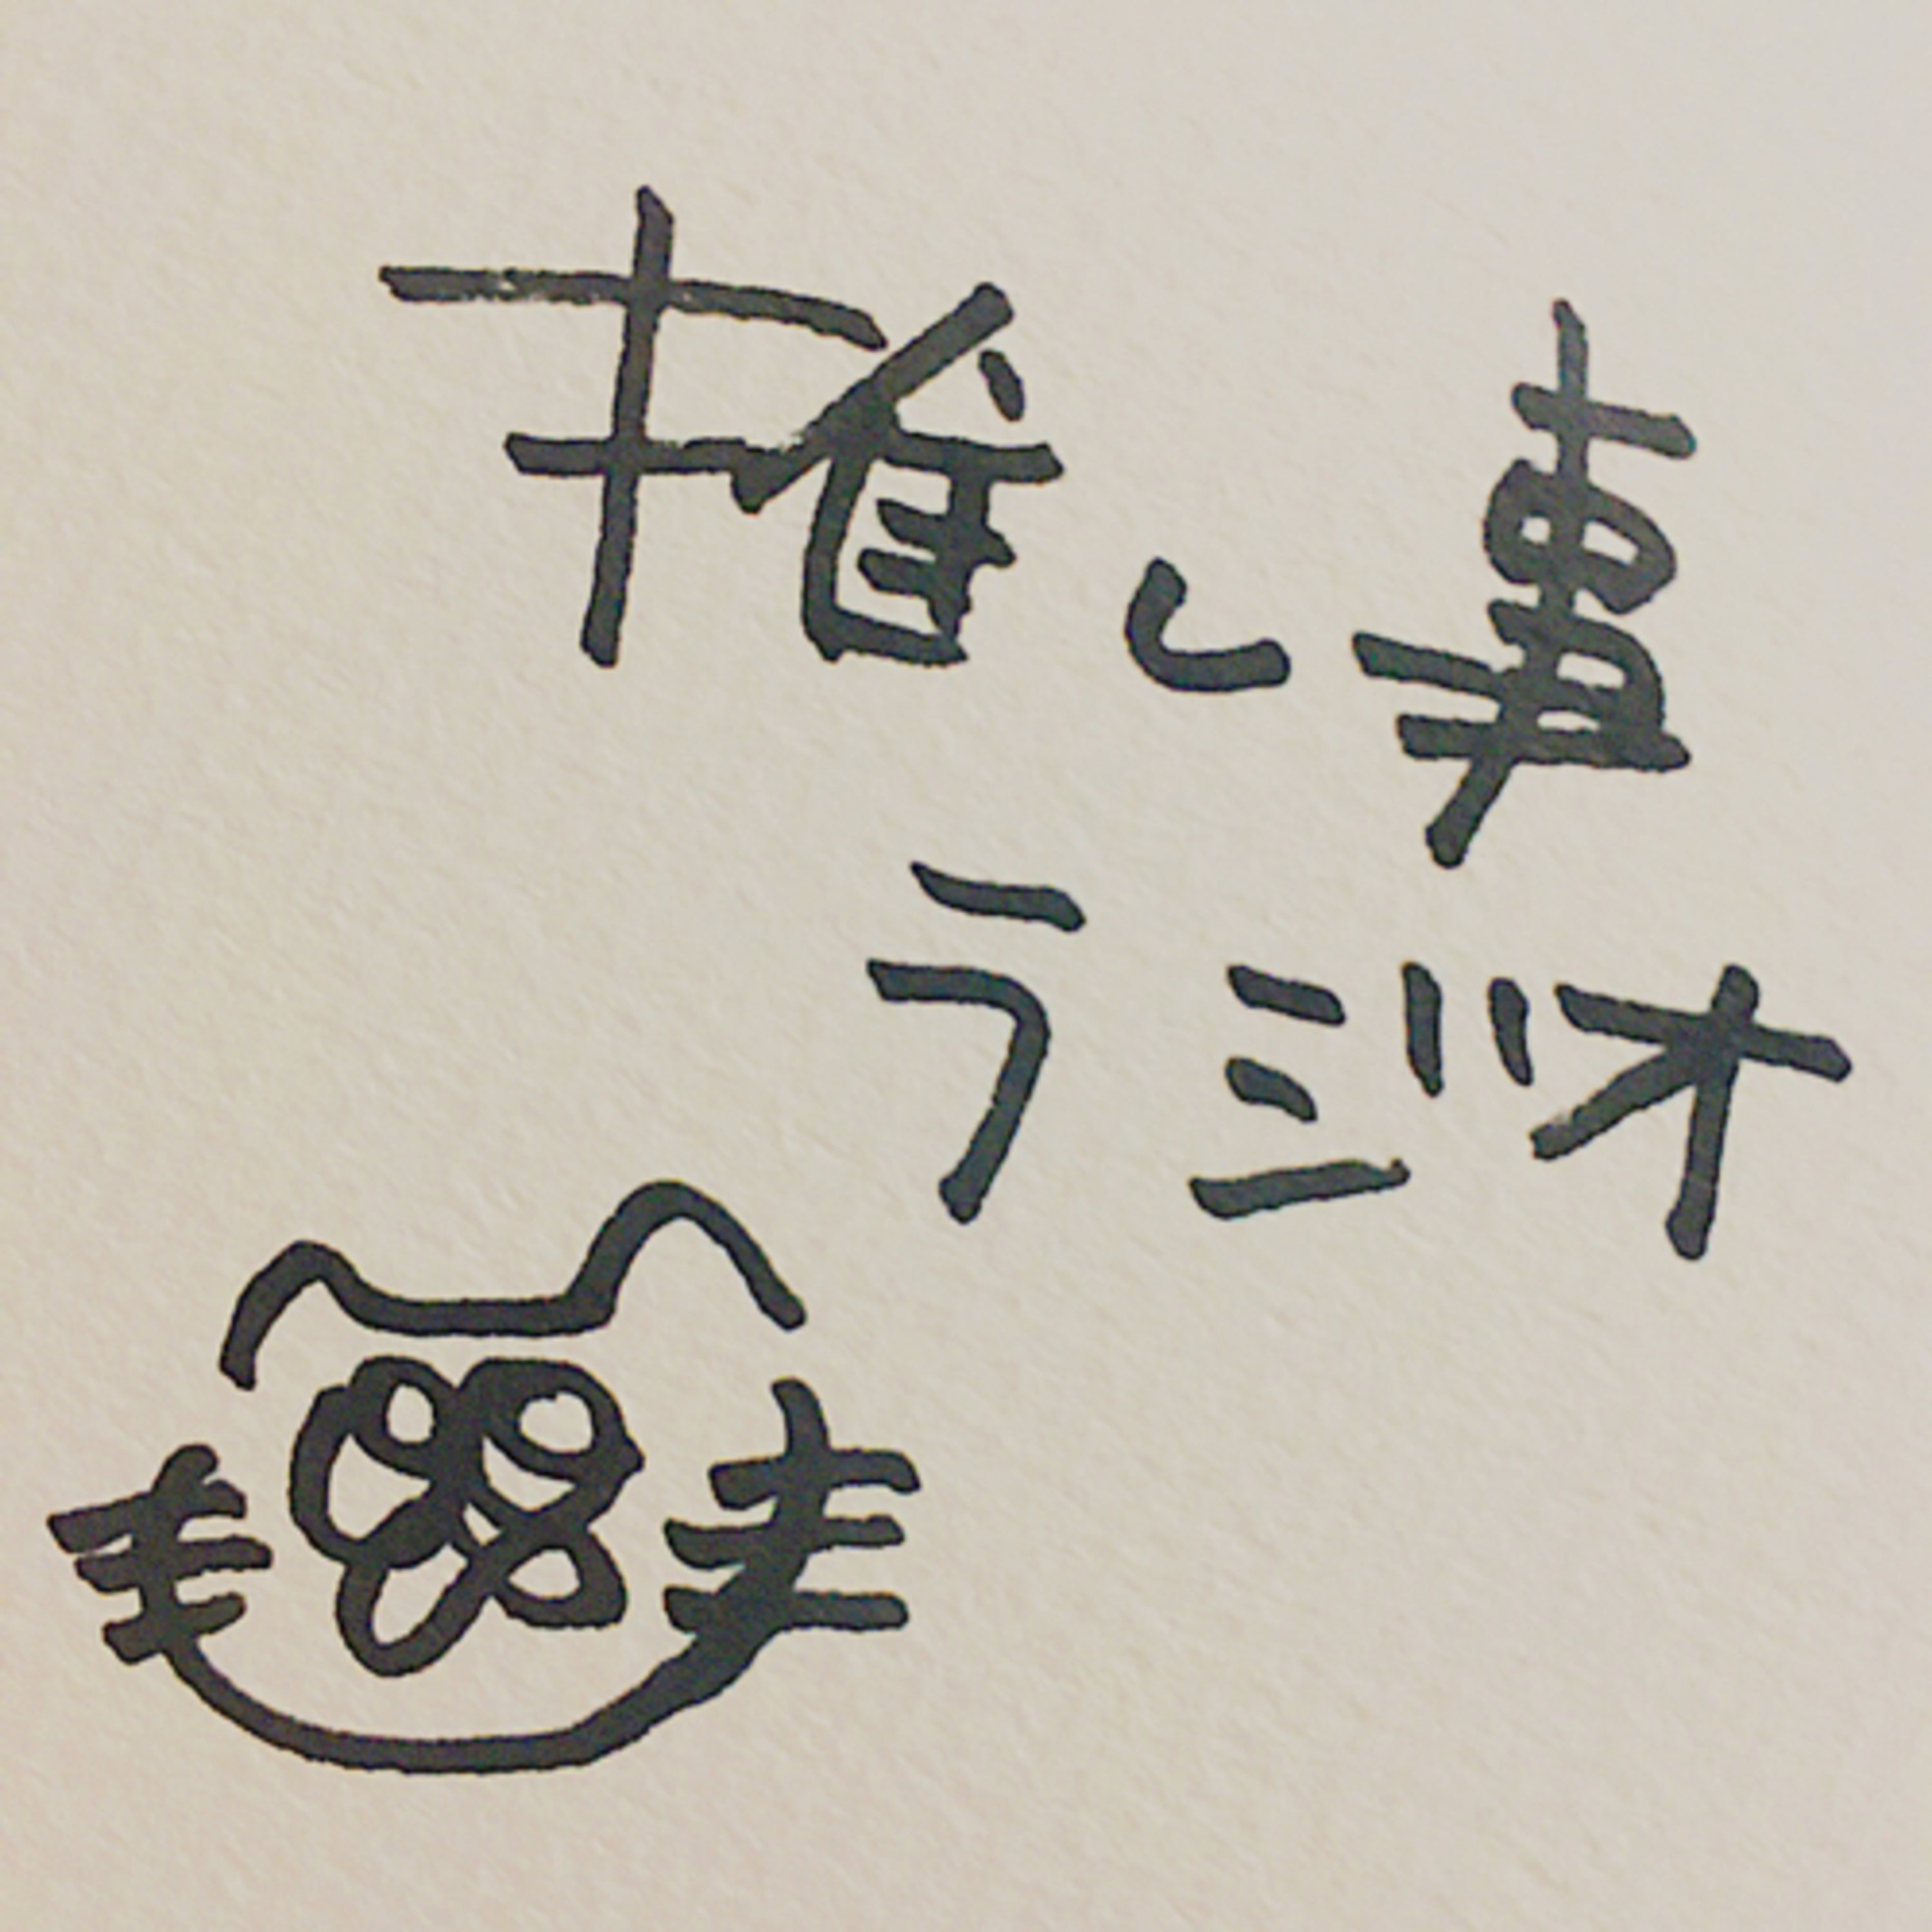 推し事
ラジオ